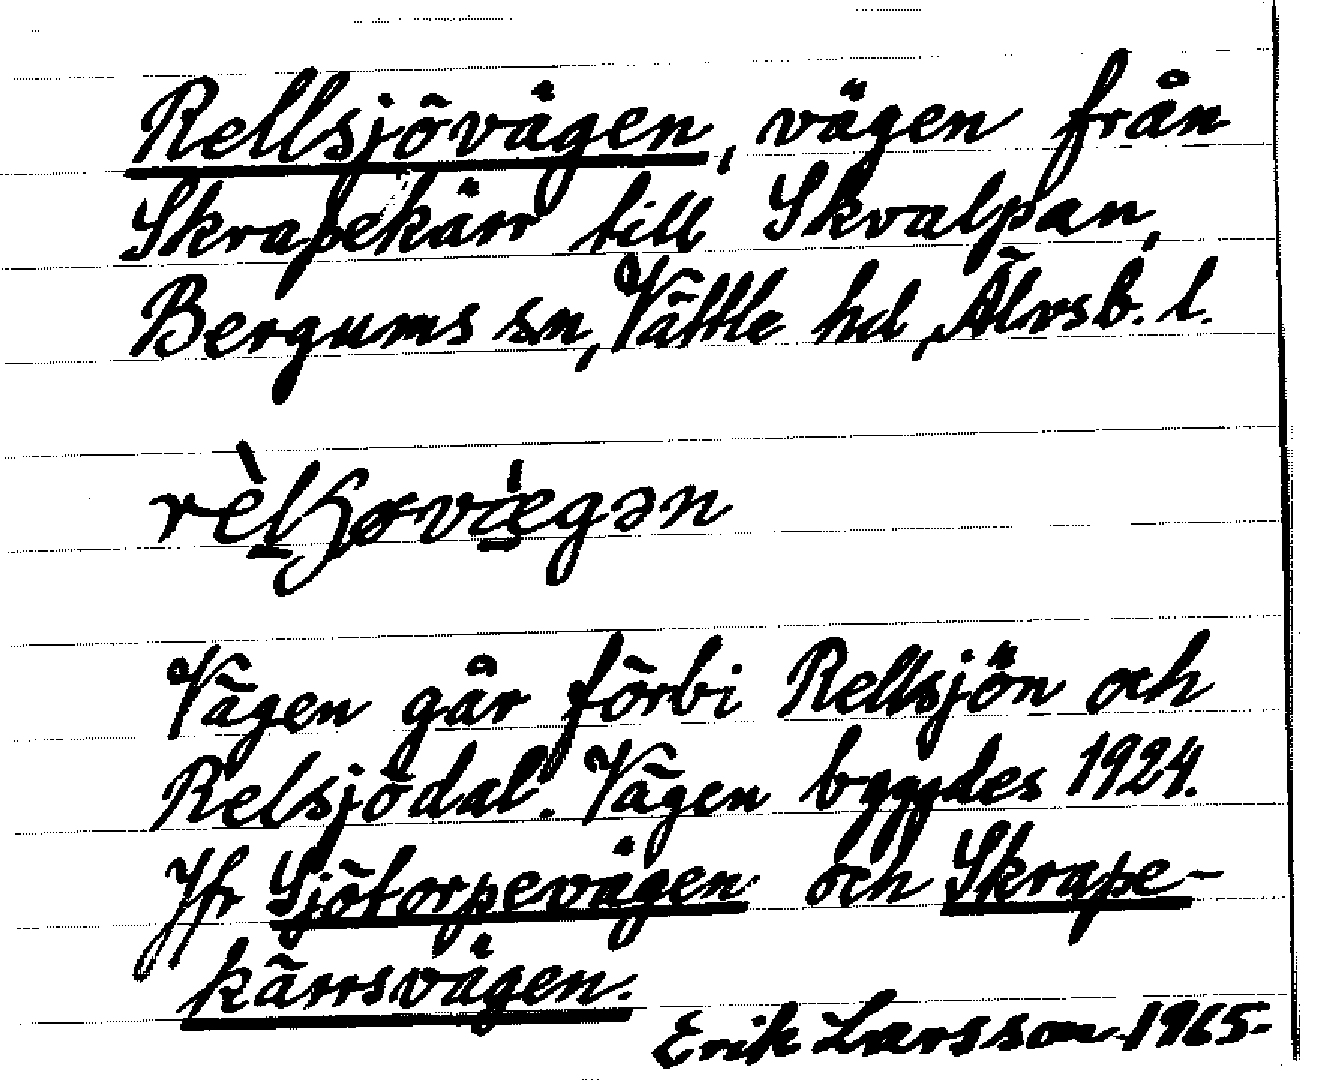 Rellsjövägen, vägen från
Skrapekärr till Skvalpan,
Bergums sn, Vättle hd, Älvsb. l.
Vägen går förbi Rellsjön och
Relsjödal. Vägen byggdes 1924.
Jfr Sjötorpevägen och Skrape-
kärrsvägen.
Erik Larsson 1965